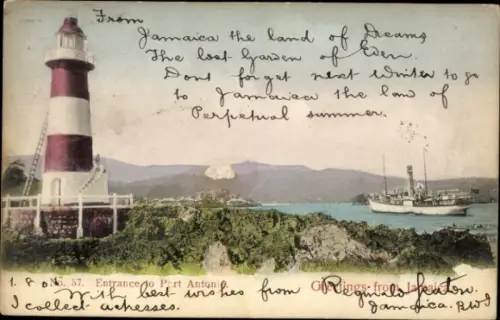 From
Jamaica the land of Dreams
The lost Garden of Eden.
Dont forget next winter to go
to Jamaica the land of
Perpetual summer.
No. 57. Entrance to Port Antonio.
Greetings from Jamaica
With best wishes from Reginald
I collect actresses. Jamaica, BWI